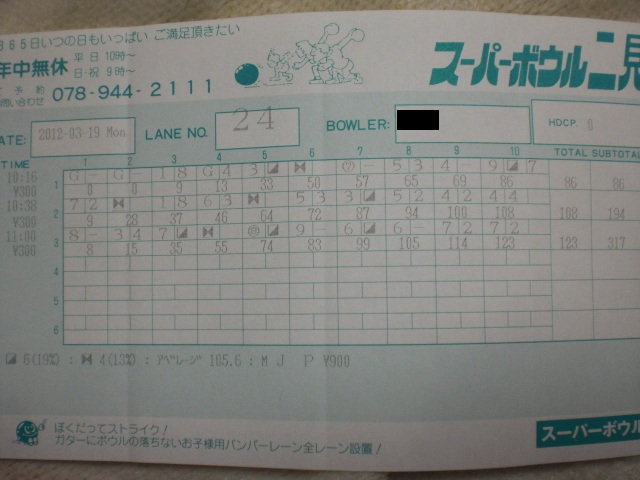 365日いつの日もいっぱい ご満足頂きたい
年中無休 平日 10時～
日・祝 9時～
ご予約
お問い合わせ 078-944-2111
スーパーボウル二見
DATE: 2012-03-19 Mon LANE NO. 24 BOWLER: HDCP. 0
TIME 1 2 3 4 5 6 7 8 9 10 TOTAL SUBTOTAL
10:16 G - G - 1 8 G 4 3 ◪ ⧓ ⑦ - 5 3 4 - 9 ◪ 7
¥300 1 0 0 9 13 33 50 57 65 69 86 86 86
10:38 7 2 ⧓ 1 8 6 3 ⧓ 5 3 3 ◪ 5 2 4 2 4 4
¥300 2 9 28 37 46 64 72 87 94 100 108 108 194
11:00 8 - 3 4 7 ◪ ⧓ ◎ ◪ 9 - 6 ◪ 6 - 7 2 7 2
¥300 3 8 15 35 55 74 83 99 105 114 123 123 317
4
5
6
◪ 6(19%) : ⧓ 4(13%) : ｱﾍﾞﾚｰｼﾞ 105.6 : M J P ¥900
ぼくだってストライク!
ガターにボウルの落ちないお子様用バンパーレーン全レーン設置!
スーパーボウル